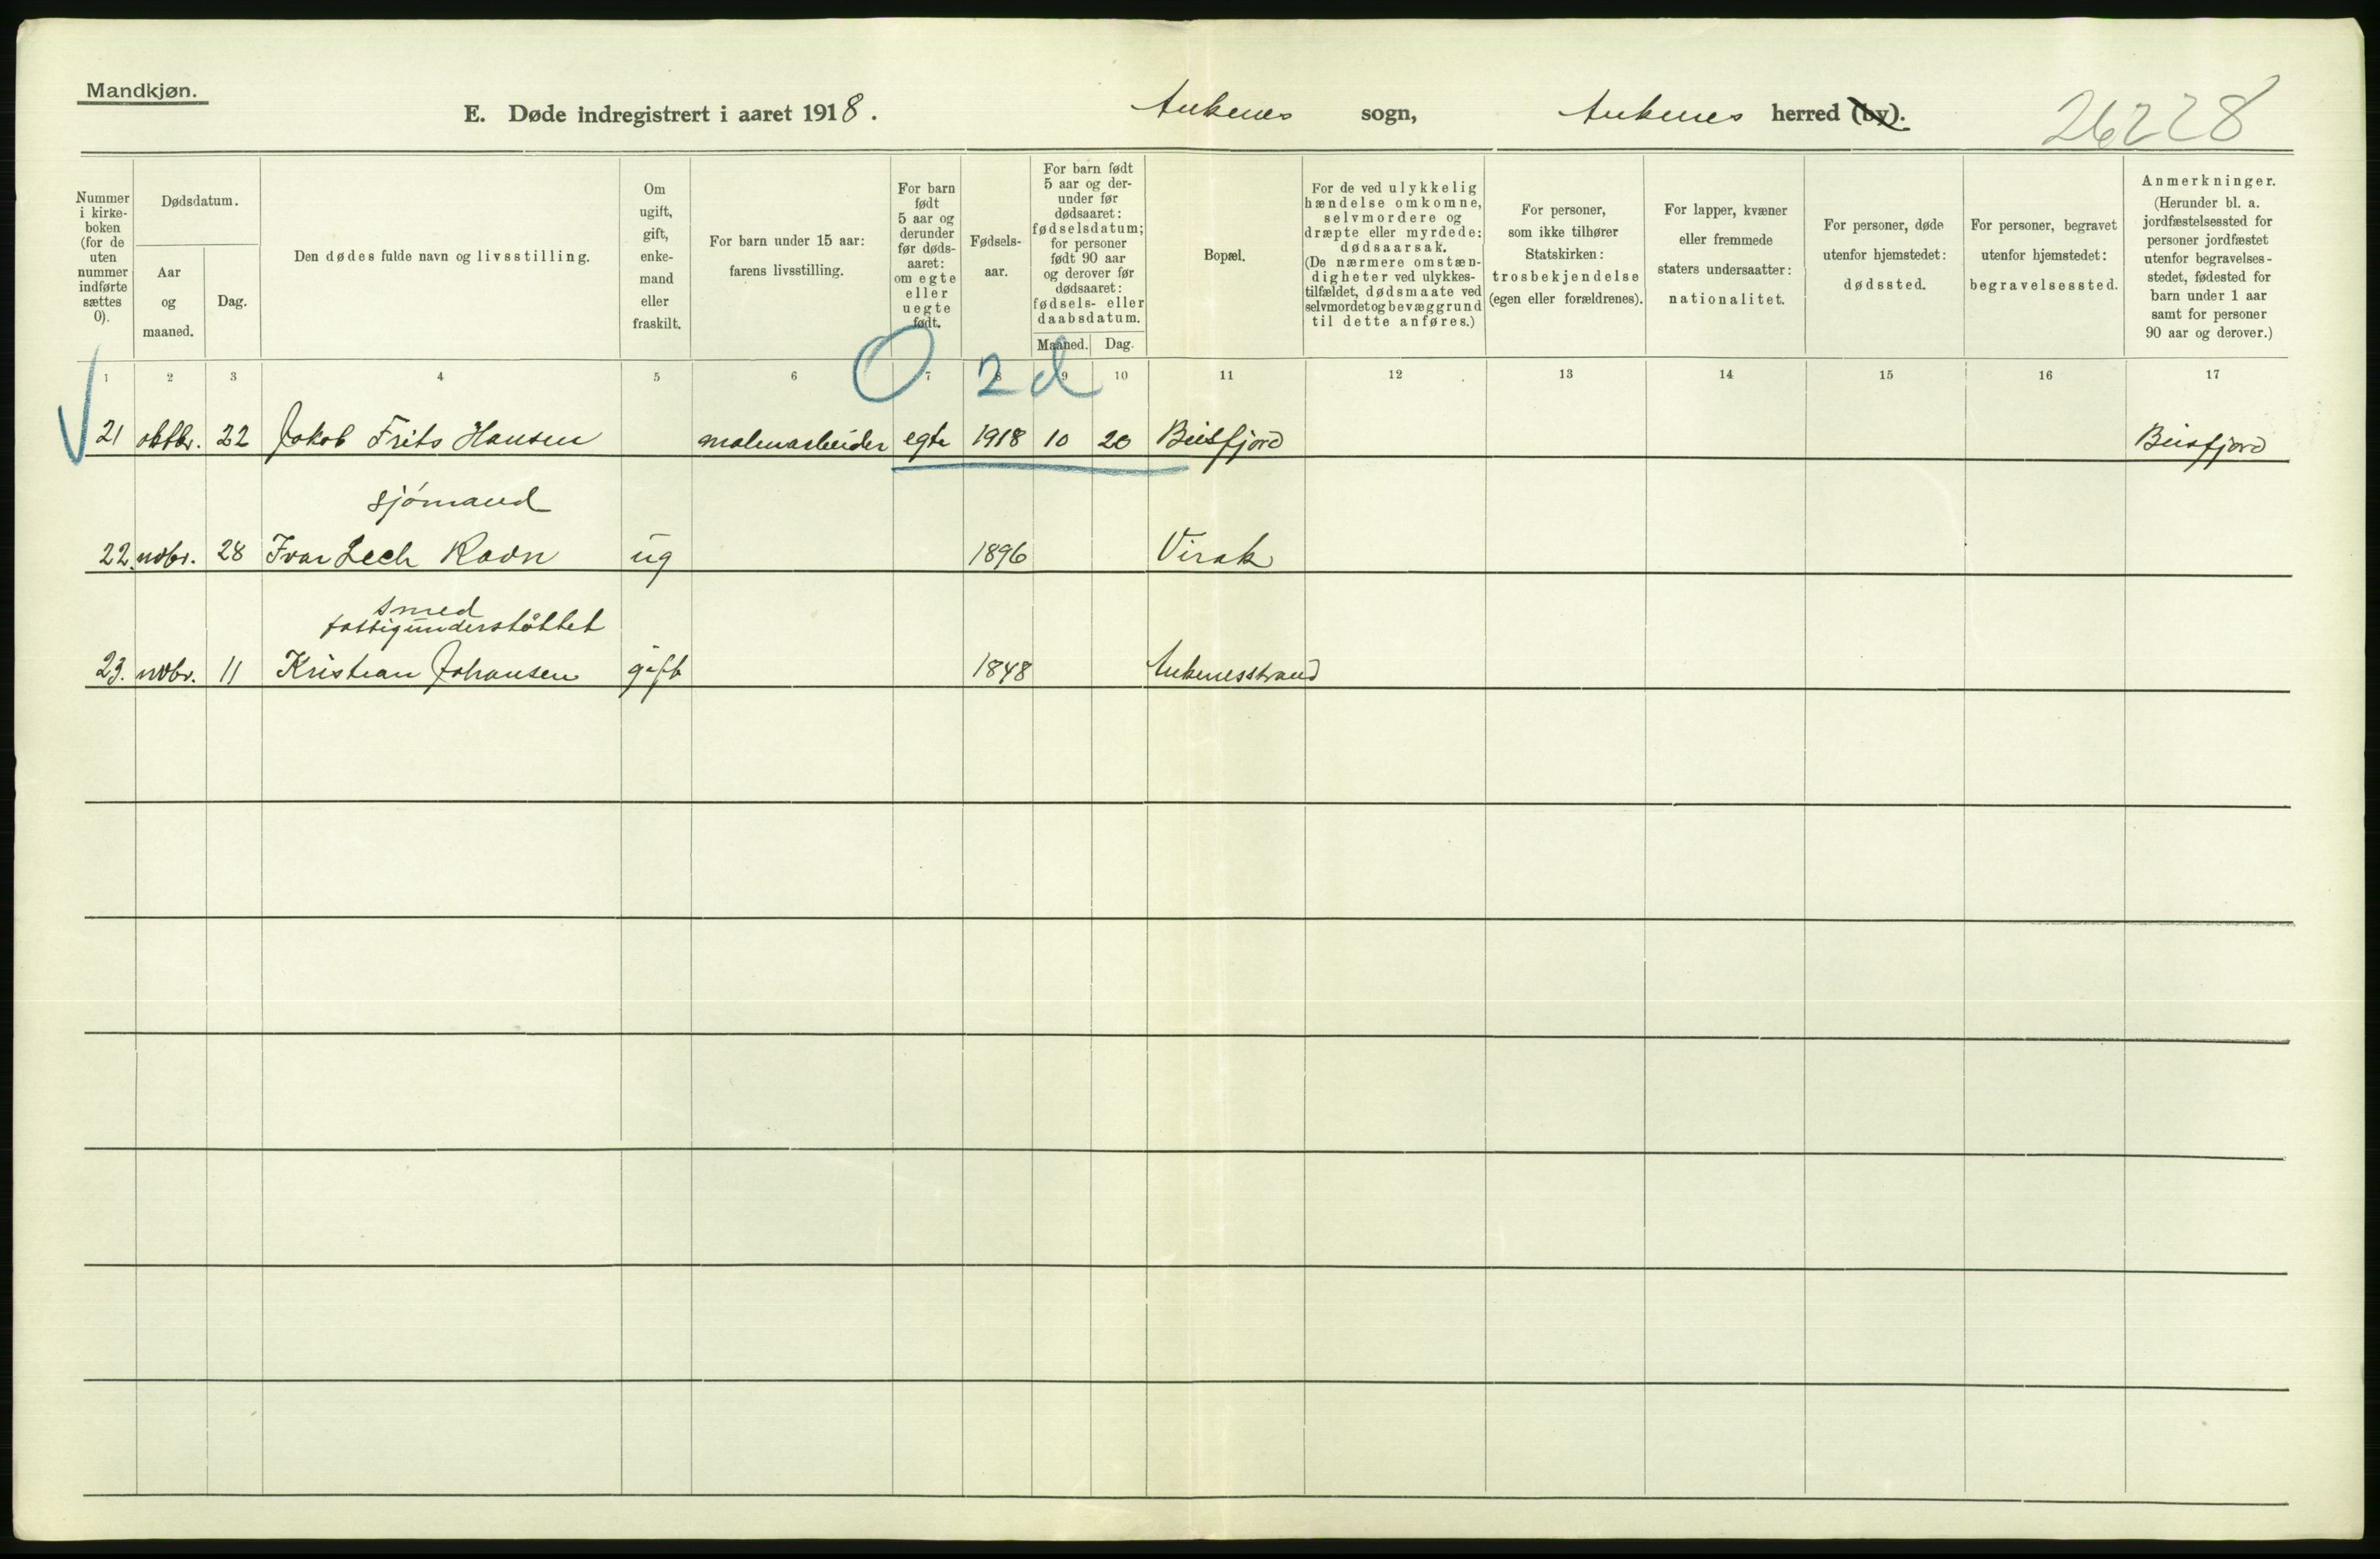 Mandkjøn.
E. Døde indregistrert i aaret 1918. Ankenes sogn, Ankenes herred (by).
26228
Nummer i kirke-boken (for de uten nummer indførte sættes 0).
Dødsdatum.
Aar og maaned.
Dag.
Den dødes fulde navn og livsstilling.
Om ugift, gift, enke-mand eller fraskilt.
For barn under 15 aar: farens livsstilling.
For barn født 5 aar og derunder før døds-aaret: om egte eller uegte født.
Fødsels-aar.
For barn født 5 aar og der-under før dødsaaret: fødselsdatum; for personer født 90 aar og derover før dødsaaret: fødsels- eller daabsdatum.
Maaned. Dag.
Bopæl.
For de ved ulykkelig hændelse omkomne, selvmordere og dræpte eller myrdede: dødsaarsak. (De nærmere omstæn-digheter ved ulykkes-tilfældet, dødsmaate ved selvmordet og bevæggrund til dette anføres.)
For personer, som ikke tilhører Statskirken: trosbekjendelse (egen eller forældrenes).
For lapper, kvæner eller fremmede staters undersaatter: nationalitet.
For personer, døde utenfor hjemstedet: dødssted.
For personer, begravet utenfor hjemstedet: begravelsessted.
Anmerkninger. (Herunder bl. a. jordfæstelsessted for personer jordfæstet utenfor begravelses-stedet, fødested for barn under 1 aar samt for personer 90 aar og derover.)
1 2 3 4 5 6 7 8 9 10 11 12 13 14 15 16 17
0 2 d
21 oktbr. 22 Jakob Frits Hansen malmarbeider egte 1918 10 20 Beisfjord Beisfjord
sjömand
22. novbr. 28 Ivar Lech Ravn ug 1896 Virak
smed
fattigunderstöttet
23. novbr. 11 Kristian Johansen gift 1848 Ankenesstrand